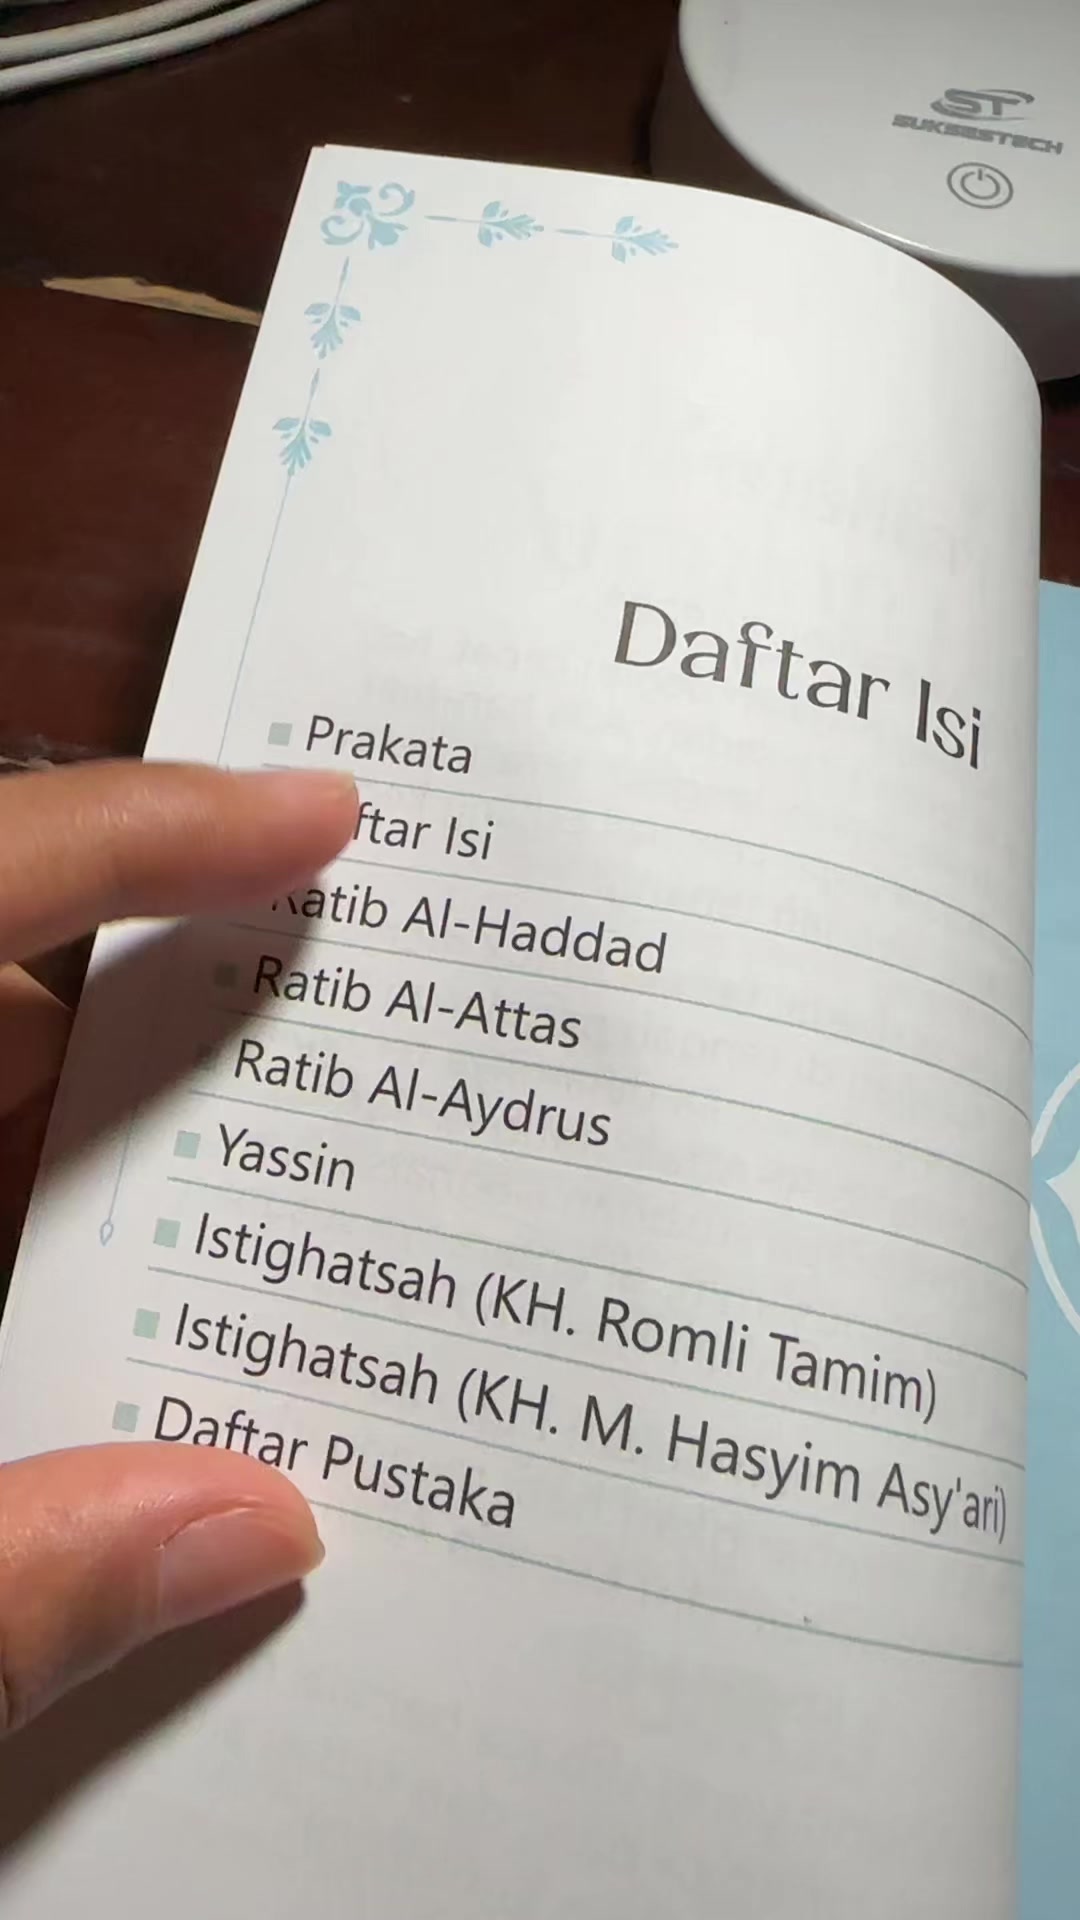 ST
SUKSESTECH
Daftar Isi
Prakata
ftar Isi
Ratib Al-Haddad
Ratib Al-Attas
Ratib Al-Aydrus
Yassin
Istighatsah (KH. Romli Tamim)
Istighatsah (KH. M. Hasyim Asy'ari)
Daftar Pustaka